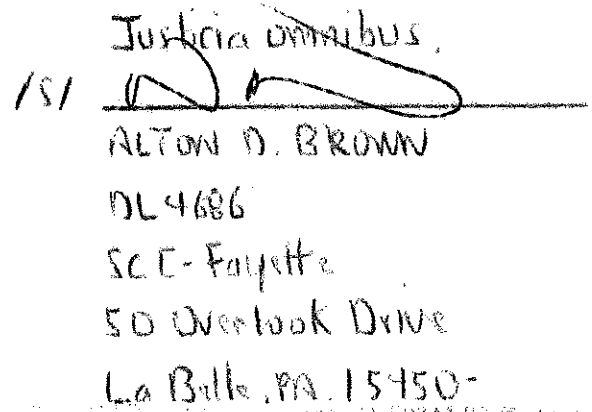 Justicia omnibus.
/S/
ALTON D. BROWN
DL4686
SCI-Fayette
50 Overlook Drive
La Belle, PA. 15450-